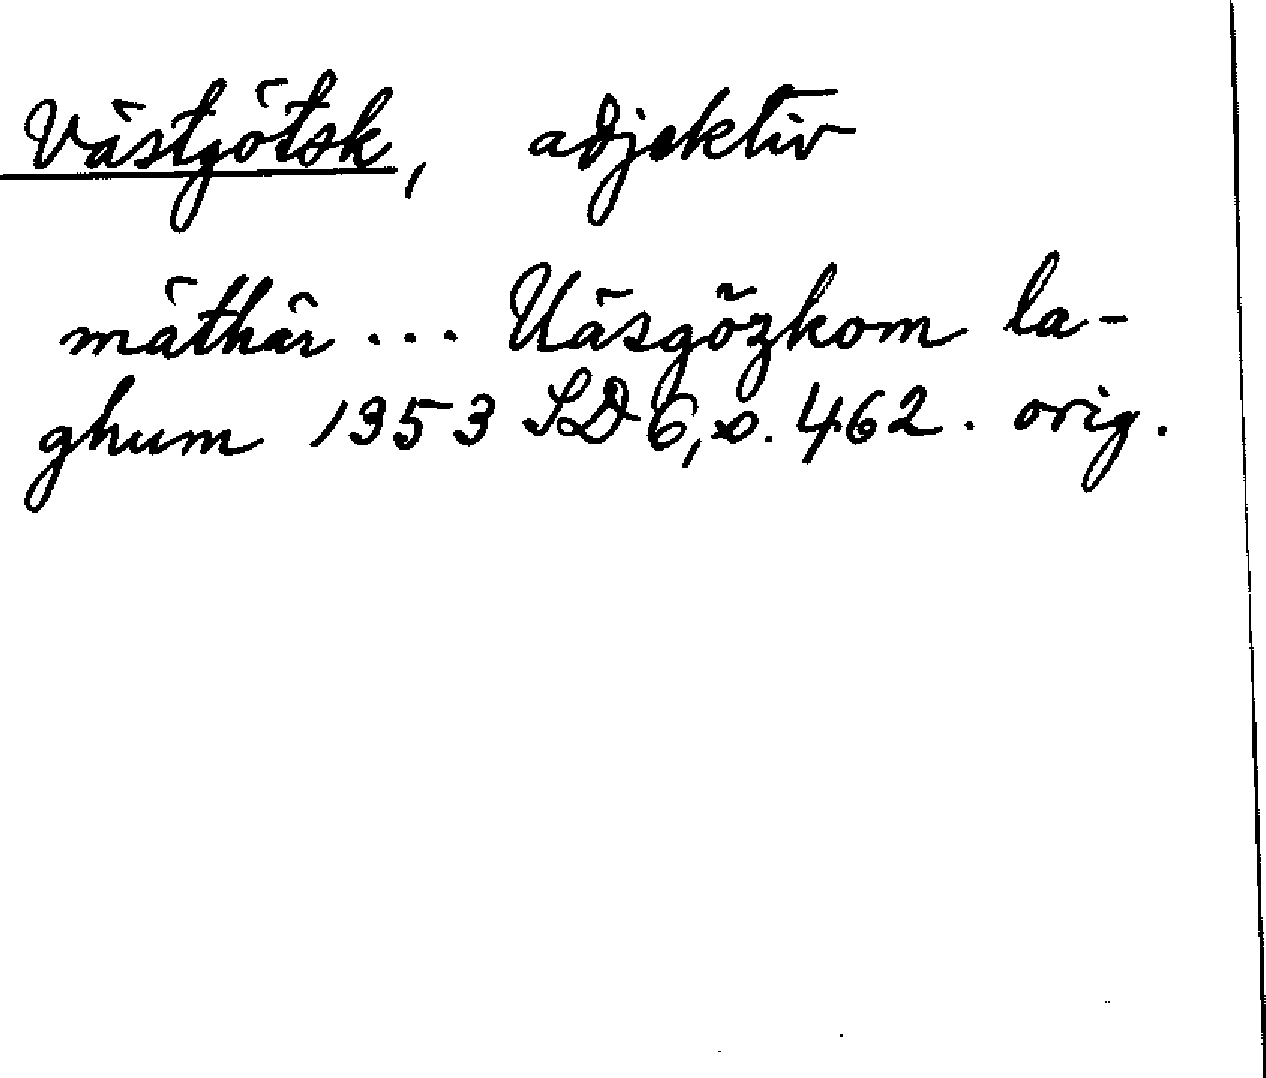 Västgötsk, adjektiv
mäthär... Uäsgözkom la-
ghum 1353 SD 6, s. 462. orig.